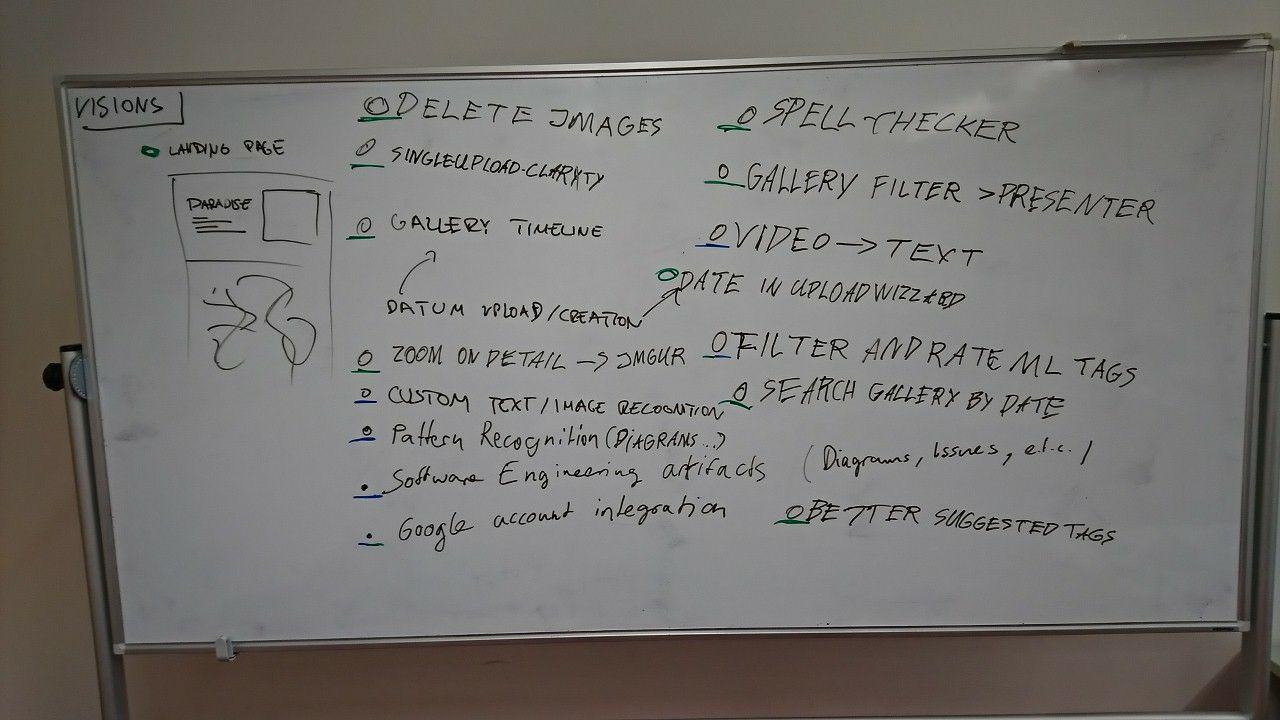 VISIONS
LANDING PAGE
PARADISE
DELETE IMAGES
SINGLEUPLOAD-CLARITY
GALLERY TIMELINE
DATUM UPLOAD/CREATION
ZOOM ON DETAIL → IMGUR
CUSTOM TEXT/IMAGE RECOGNITION
Pattern Recognition (DIAGRAMS..)
Software Engineering artifacts (Diagrams, Issues, e.t.c.)
Google account integration
SPELL CHECKER
GALLERY FILTER > PRESENTER
VIDEO → TEXT
DATE IN UPLOADWIZZARD
FILTER AND RATE ML TAGS
SEARCH GALLERY BY DATE
BETTER SUGGESTED TAGS